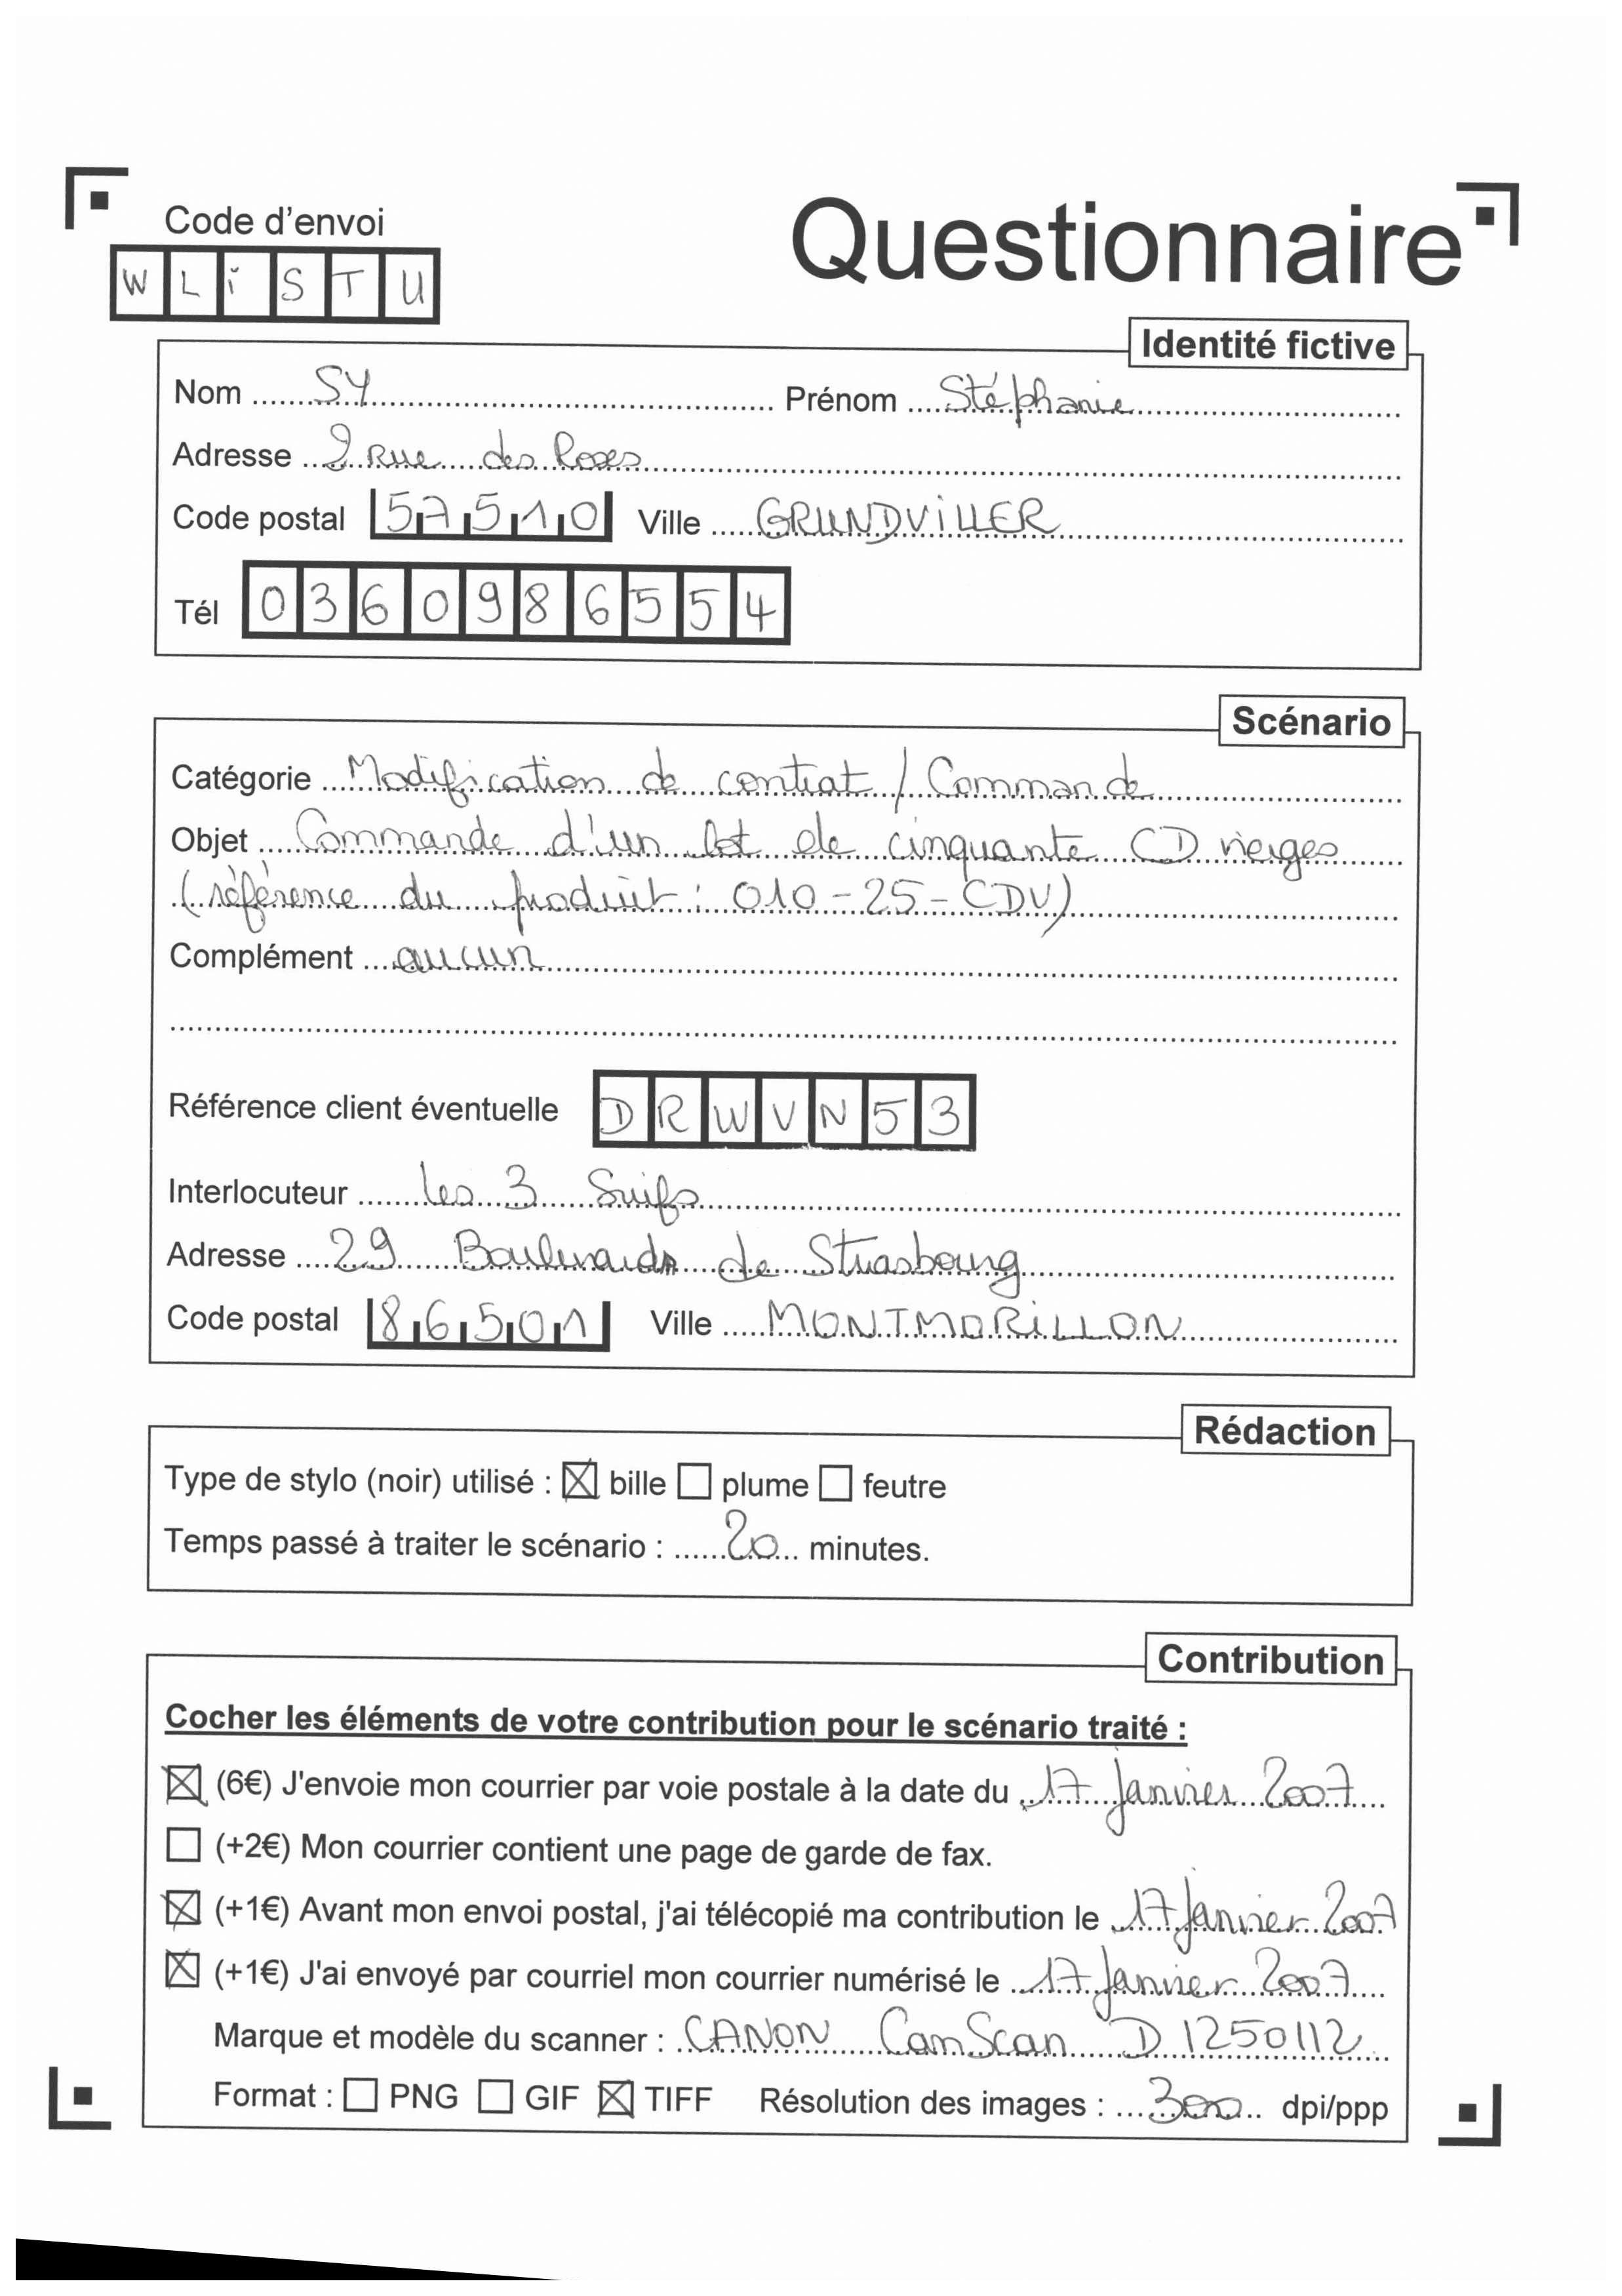 Code d'envoi
Questionnaire
W L i S T U
Identité fictive
Nom SY Prénom Stéphanie
Adresse 2 Rue des Roses
Code postal 57510 Ville GRUNDViLLER
Tél 0360986554
Scénario
Catégorie Modification de contrat / Commande
Objet Commande d'un lot de cinquante CD vierges
(référence du produit : 010-25-CDV)
Complément aucun
Référence client éventuelle DRWVN53
Interlocuteur Les 3 Suifs
Adresse 29 Boulevards de Strasbourg
Code postal 86501 Ville MONTMORiLLON
Rédaction
Type de stylo (noir) utilisé : ☒ bille ☐ plume ☐ feutre
Temps passé à traiter le scénario : 20 minutes.
Contribution
Cocher les éléments de votre contribution pour le scénario traité :
☒ (6€) J'envoie mon courrier par voie postale à la date du 17 Janvier 2007
☐ (+2€) Mon courrier contient une page de garde de fax.
☒ (+1€) Avant mon envoi postal, j'ai télécopié ma contribution le 17 Janvier 2007
☒ (+1€) J'ai envoyé par courriel mon courrier numérisé le 17 Janvier 2007
Marque et modèle du scanner : CANON CamScan D 1250112
Format : ☐ PNG ☐ GIF ☒ TIFF Résolution des images : 300 dpi/ppp